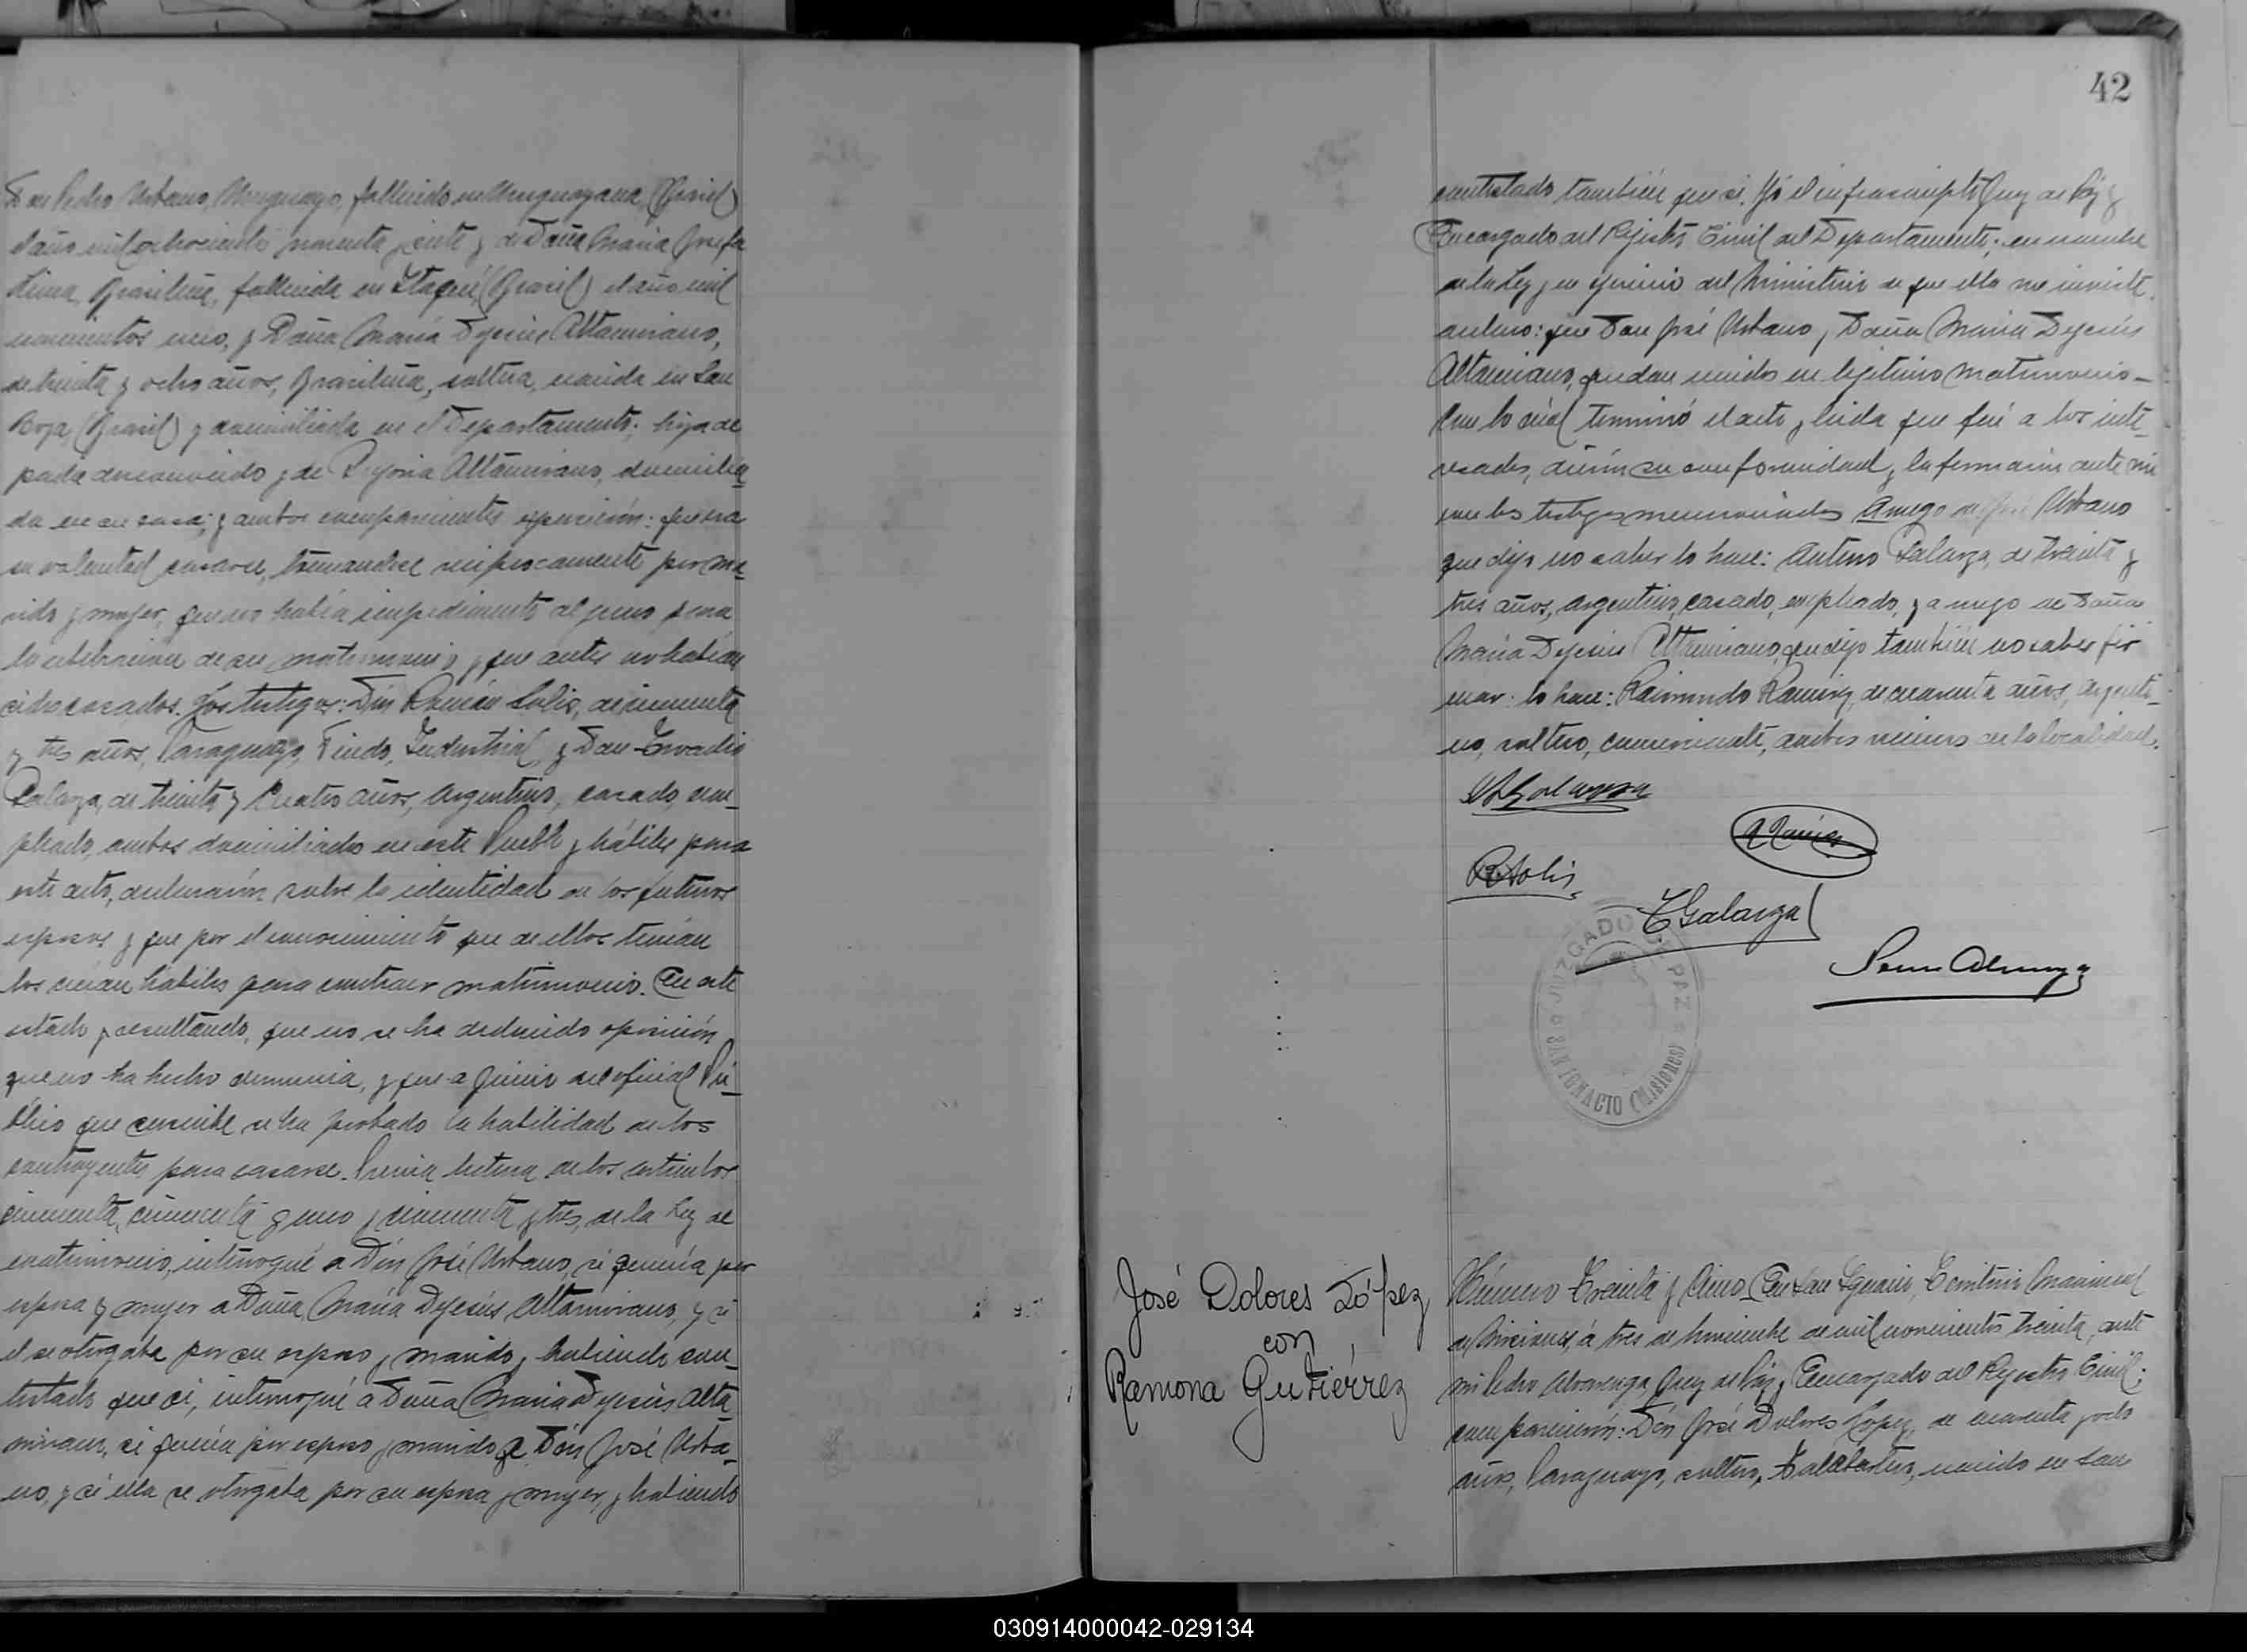 Don Pedro Urbano, Uruguayo, fallecido en Uruguayana (Brasil)
el año mil ochocientos noventa y siete y de Doña Maria Josefa
Lima, Brasileña, fallecida en Itaquí (Brasil) el año mil
novecientos uno, y Doña María Dejesús Altamirano,
de treinta y ocho años, Brasileña, soltera, nacida en San
Borja (Brasil) y domiciliada en el Departamento; hija de
padre desconocido y de Altamirano, domicilia_
da en su casa; y ambos comparecientes expusieron: que era
su voluntad casarse, tomandose reciprocamente por ma_
rido y mujer, que no había impedimento alguno para
la celebracion de su matrimonio y que antes no habían
sido casados. Los testigos: Dón Román Solis, de cincuenta
y tres años, Paraguayo, Viudo, Industrial, y Don
Galarza, de treinta y cuatro años, Argentino, casado, em_
pleado, ambos domiciliados en este Pueblo y hábiles para
este acto, declararón sobre la identidad de los futuros
esposos y que por el conocimiento que de ellos tenían
los creían hábiles para contraer matrimonio. En este
estado y resultando, que no se ha deducido oposición
que no ha hecho denuncia, y que a juicio del oficial Pú_
blico que suscribe se ha probado la habilidad de los
contrayentes para casarse. Previa lectura de los artículos
cincuenta, cincuenta y uno y cincuenta y tres, de la Ley de
matrimonio, interrogué a Dón José Urbano, si quería por
esposa y mujer a Doña María Dejesús Altamirano, y si
el se otorgaba por su esposo y marido y habiendo con_
testado que sí, interrogué a Doña Maria Dejesús Alta_
mirano, si quería por esposo y marido a Dón José Urba_
no, y si ella se otorgaba por su esposa y mujer, y habiendo
42
contestado también que si. Yó el infrascripto Juez de Paz y
Encargado del Rejistro Civil del Departamento; en nombre
de la Ley y en ejercicio del Ministerio de que ella me inviste.
declaro: que Don José Urbano y Doña María Dejesús
Altamirano, quedan unidos en lejitimo matrimonio_
Con lo cuál terminó el acto y leida que fué a los inte_
resados, dierón su conformidad y la firmarón ante mi
con los testigos mencionados A ruego de José Urbano
que dijo no saber lo hace: Galarza, de treinta y
tres años, argentino, casado, empleado, y a ruego de Doña
María Dejesús Altamirano, que dijo también no saber fir
mar. lo hace: Raimundo Ramirez, de cuarenta años, Argenti_
no, soltero, comerciante, ambos vecinos de la localidad.
Galarza
R Ramirez
R Solis
E Galarza
Pedro Alvarenga
JUZGADO DE PAZ
SAN IGNACIO (Misiones)
José Dolores López
con
Ramona Gutiérrez
Número Treinta y Cinco En San Ignacio, Territorio Nacional
de Misiones, á tres de Noviembre de mil novecientos treinta, ante
mi Pedro Alvarenga Juez de Paz y Encargado del Rejistro Civil;
comparecierón: Dón José Dolores Lopez, de cuarenta y ocho
años, Paraguayo, soltero, Talabartero, nacido en San
030914000042-029134